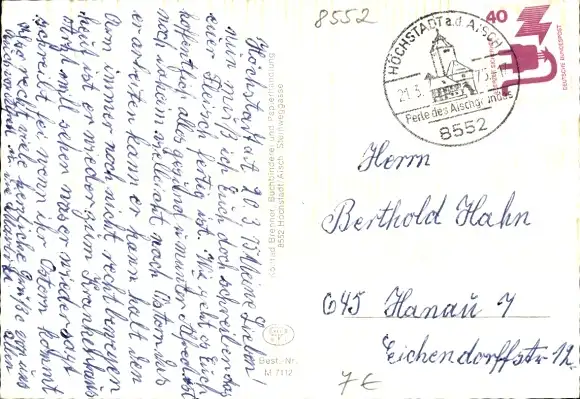 8552
HÖCHSTADT a.d. AISCH
21.3. 75
Perle des Aischgrundes
8552
40
DEUTSCHE BUNDESPOST
Herrn
Berthold Hahn
645 Hanau 1
Eichendorffstr. 12.
7€
Höchstadt 20.3.75 Meine Lieben!
nun muß ich Euch doch schreiben das
euer Fleisch fertig ist. Wie geht es Euch
hoffentlich alles gesund u munter
noch vielleicht nach Ostern
arbeiten kann er kann halt den
Arm immer noch nicht recht bewegen
heut ist er wieder zum Krankenhaus
mal sehen was er wieder sagt
schreibt bei wenn ihr Ostern kommt
also recht viele herzliche Grüße von uns
allen
Konrad Brenner, Buchbinderei und Papierhandlung
8552 Höchstadt/Aisch, Steinweggasse
Best.-Nr.
M 7112